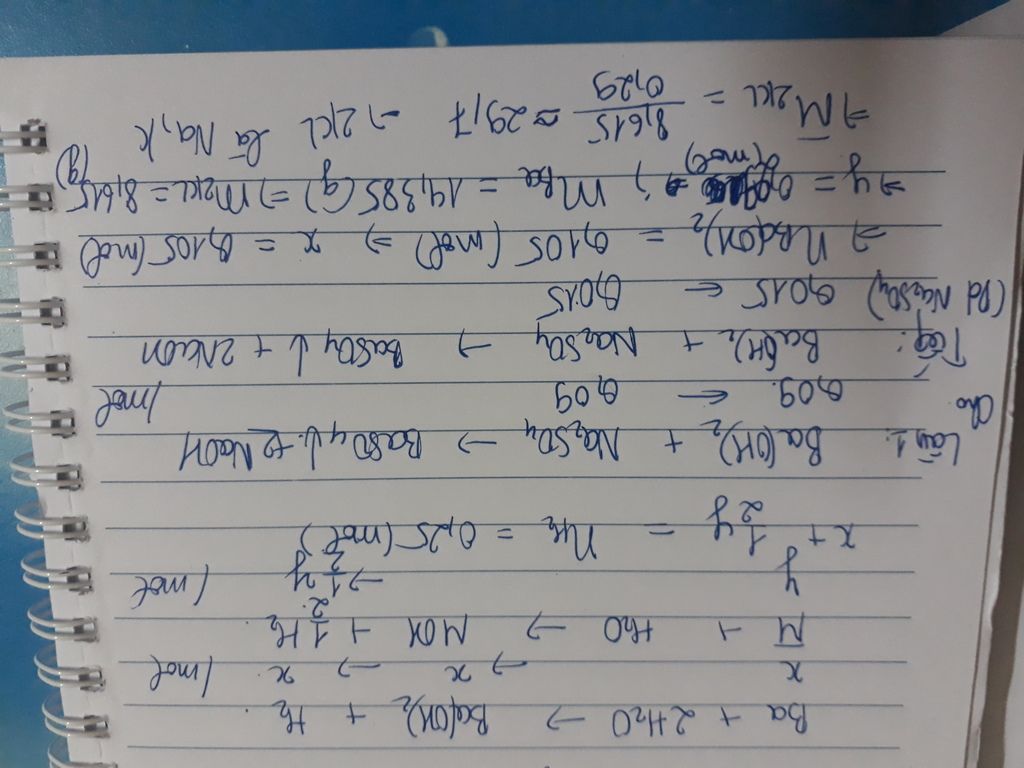 Ba + 2H₂O → Ba(OH)₂ + H₂
x → x → x /mol
M̅ + H₂O → MOH + 1/2 H₂
y → 1/2 y /mol
x + 1/2 y = nH₂ = 0,25 (mol)
Lần 1: Ba(OH)₂ + Na₂SO₄ → BaSO₄↓ + 2NaOH
Cho 0,09 ← 0,09 /mol
Tiếp: Ba(OH)₂ + Na₂SO₄ → BaSO₄↓ + 2NaOH
(Dd Na₂SO₄) 0,015 ← 0,015
⇒ nBa(OH)₂ = 0,105 (mol) ⇒ x = 0,105 (mol)
⇒ y = 0,29 (mol) ; mBa = 14,385 (g) ⇒ m2KL = 8,615 (g)
⇒ M̅2KL = 8,615/0,29 ≈ 29,7 → 2KL là Na, K